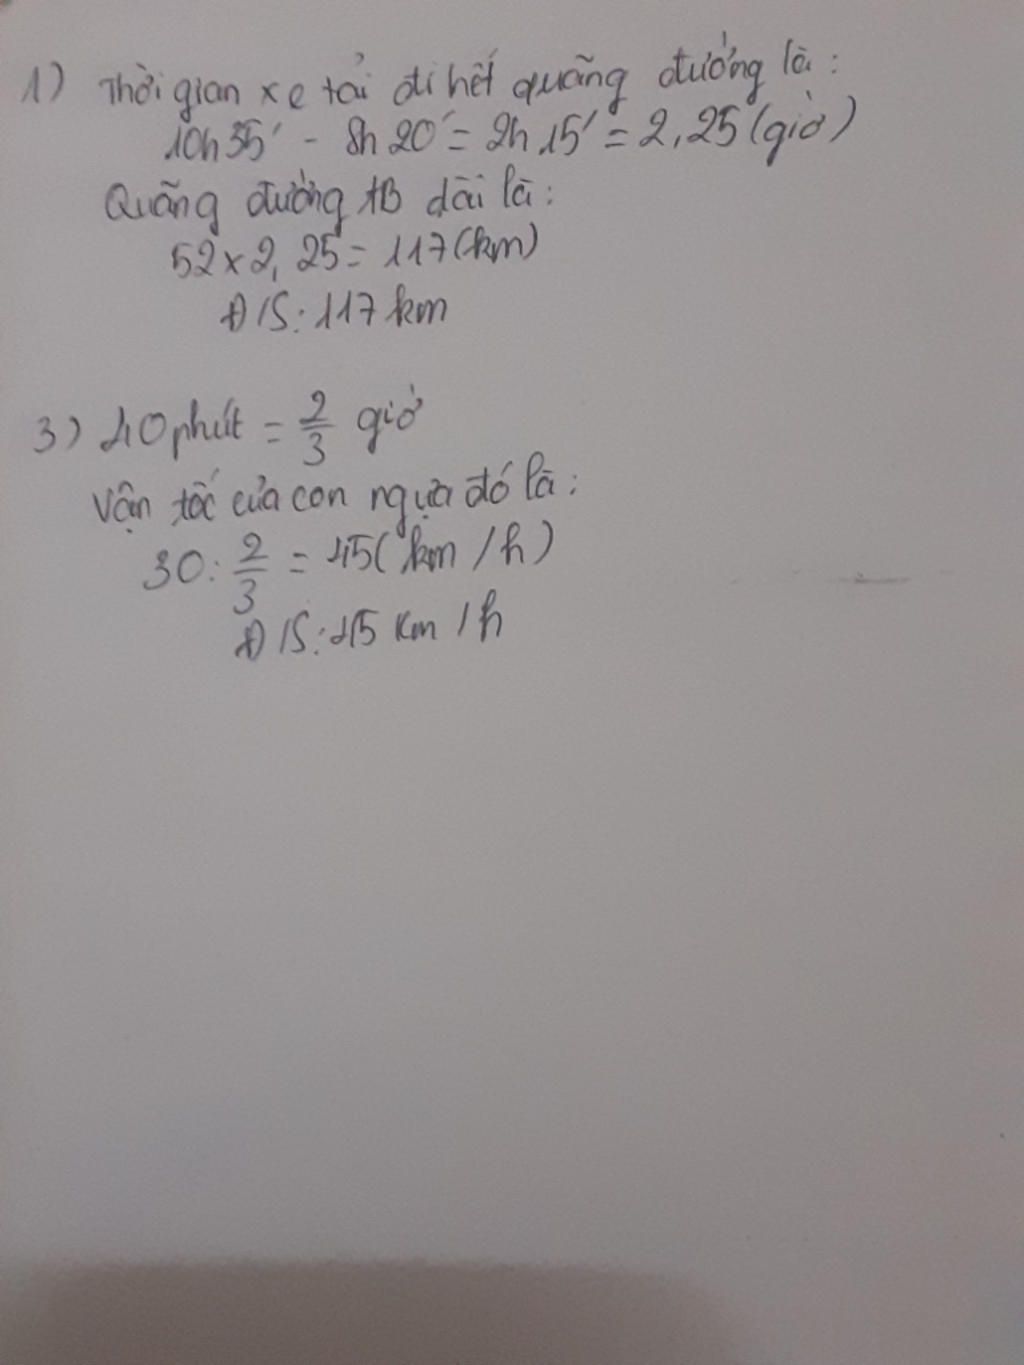 1) Thời gian xe tải đi hết quãng đường là:
10h35' - 8h20' = 2h15' = 2,25 (giờ)
Quãng đường AB dài là:
52 x 2,25 = 117 (km)
Đ/S: 117 km
3) 40 phút = 2/3 giờ
Vận tốc của con ngựa đó là:
30 : 2/3 = 45 (km/h)
Đ/S: 45 km/h